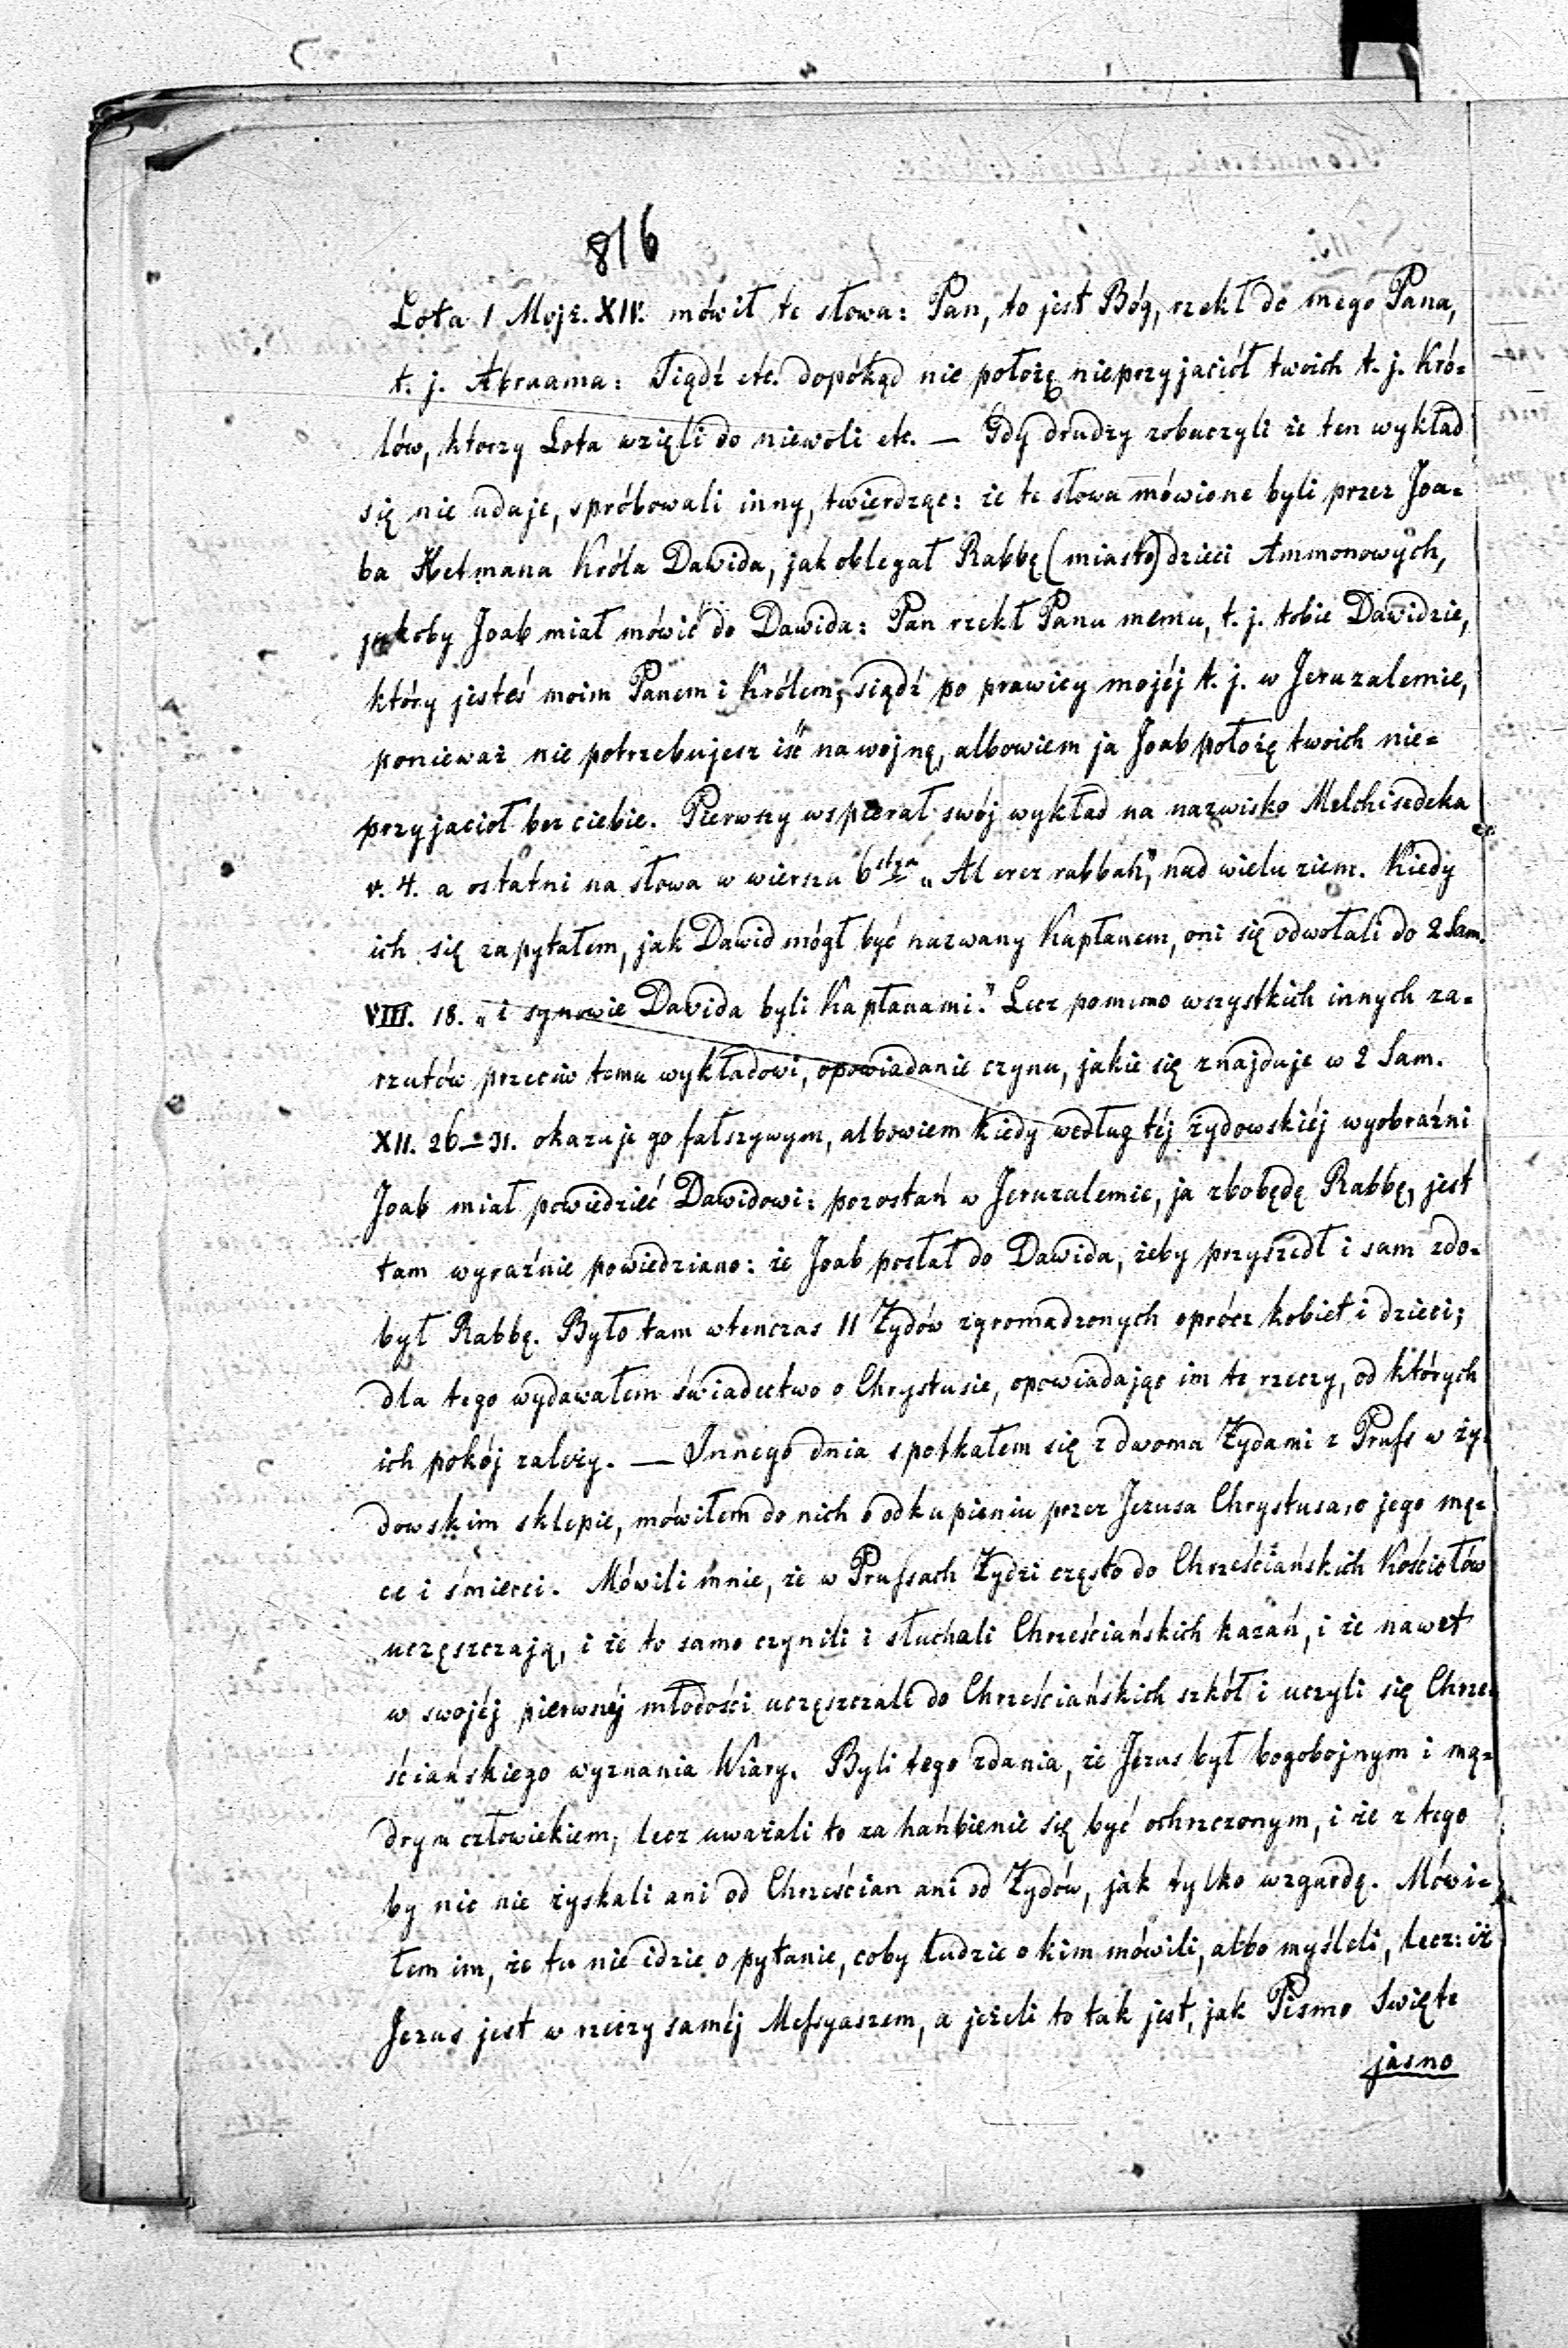 816
Lota 1 Mojż. XIV. mówił te słowa: Pan, to jest Bóg, rzekł do mego Pana,
t. j. Abraama: Siądź etc. dopókąd nie położę nieprzyjaciół twoich t. j. Kró-
lów, ktorzy Lota wzięli do niewoli etc. — Gdy drudzy zobaczyli że ten wykład
się nie udaje, spróbowali inny, twierdząc: że te słowa mówione byli przez Joa-
ba Hetmana Króla Dawida, jak oblegał Rabbę (miasto) dzieci Ammonowych,
jakoby Joab miał mówić do Dawida: Pan rzekł Panu memu, t. j. tobie Dawidzie,
który jesteś moim Panem i Królem, siądź po prawicy mojéj t. j. w Jeruzalemie,
ponieważ nie potrzebujesz iść na wojnę, albowiem ja Joab położę twoich nie-
przyjacioł bez ciebie. Pierwszy wspierał swój wykład na nazwisko Melchisedeka
v. 4. a ostatni na słowa w wierszu 6 „Al erez rabbah," nad wielu ziem. Kiedy
ich się zapytałem, jak Dawid mógł być nazwany Kapłanem, oni się odwołali do 2 Sam.
VIII. 18. „i synowie Davida byli Kapłanami." Lecz pomimo wszystkich innych za-
rzutów przeciw temu wykładowi, opowiadanie czynu, jakie się znajduje w 2 Sam.
XII. 26–31. okazuje go fałszywym, albowiem kiedy według téj żydowskiéj wyobraźni
Joab miał powiedzieć Dawidowi: pozostań w Jeruzalemie, ja zbobędę Rabbę, jest
tam wyraźnie powiedziano: że Joab posłał do Dawida, żeby przyszedł i sam zdo-
był Rabbę. Było tam wtenczas 11 Żydów zgromadzonych oprócz kobiet i dzieci;
dla tego wydawałem świadectwo o Chrystusie, opowiadając im te rzeczy, od których
ich pokój zależy. — Innego dnia spotkałem się z dwoma Żydami z Pruss w ży-
dowskim sklepie, mówiłem do nich o odkupieniu przez Jezusa Chrystusa, o jego mę-
ce i śmierci. Mówili mnie, że w Prussach Żydzi często do Chrześciańskich Kościołów
uczęszczają, i że to samo czynili i słuchali Chrześciańskich kazań, i że nawet
w swojéj pierwszéj młodości uczęszczali do Chrześciańskich szkół i uczyli się Chrze-
ściańskiego wyznania Wiary. Byli tego zdania, że Jezus był bogobojnym i mą-
drym człowiekiem, lecz uważali to za hańbienie się być ochrzczonym, i że z tego
by nic nie zyskali ani od Chrześcian ani od Żydów, jak tylko wzgardę. Mówi-
łem im, że tu nie idzie o pytanie, coby ludzie o kim mówili, albo myśleli, lecz: iż
Jezus jest w rzeczy saméj Messyaszem, a jeżeli to tak jest, jak Pismo Swięte
jasno